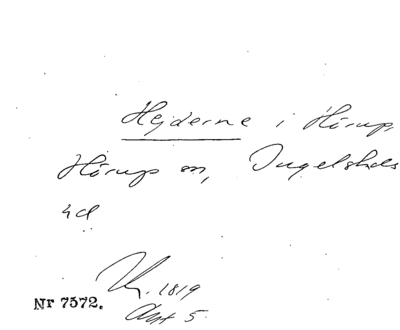 Hejderne i Hörup,
Hörup sn, Ingelstads
hd
1819
Akt 5.
Nr 7572.